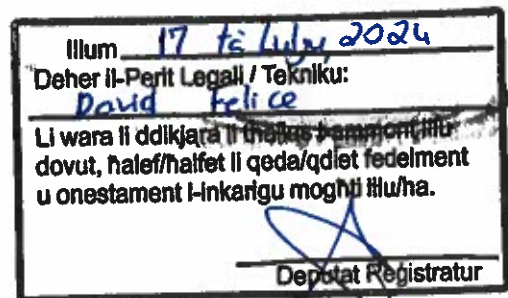 Illum 17 ta' Lulju, 2024
Deher il-Perit Legali / Tekniku:
David Felice
Li wara li ddikjara li tħallas l-ammont lilu
dovut, ħalef/ħalfet li qeda/qdiet fedelment
u onestament l-inkarigu mogħti lilu/ha.
Deputat Reġistratur